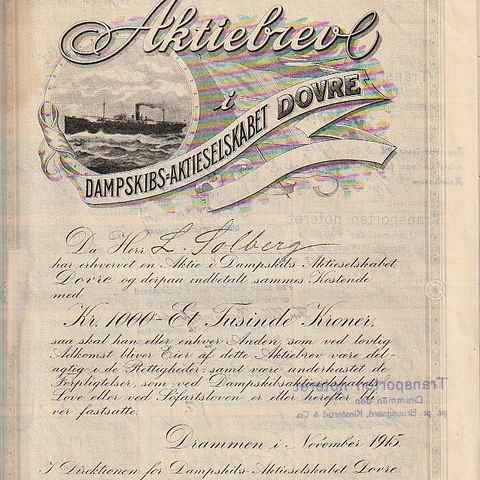 Aktiebrev
i
DAMPSKIBS-AKTIESELSKABET DOVRE
Da Herr L. Solberg
har erhvervet en Aktie i Dampskibs-Aktieselskabet
Dovre og derpaa indbetalt sammes Kostende
med
Kr. 1000 - Et Tusinde Kroner,
saa skal han eller enhver Anden, som ved lovlig
Adkomst bliver Eier af dette Aktiebrev være del-
agtig i de Rettigheder samt være underkastet de
Forpligtelser, som ved Dampskibsaktieselskabets
Love eller ved Söfartsloven er eller herefter bli-
ver fastsatte.
Transporten noteret
Drammen den
pr. pr. Bruusgaard, Kiøsterud & Co.
Drammen i November 1915.
I Direktionen for Dampskibs-Aktieselskabet Dovre